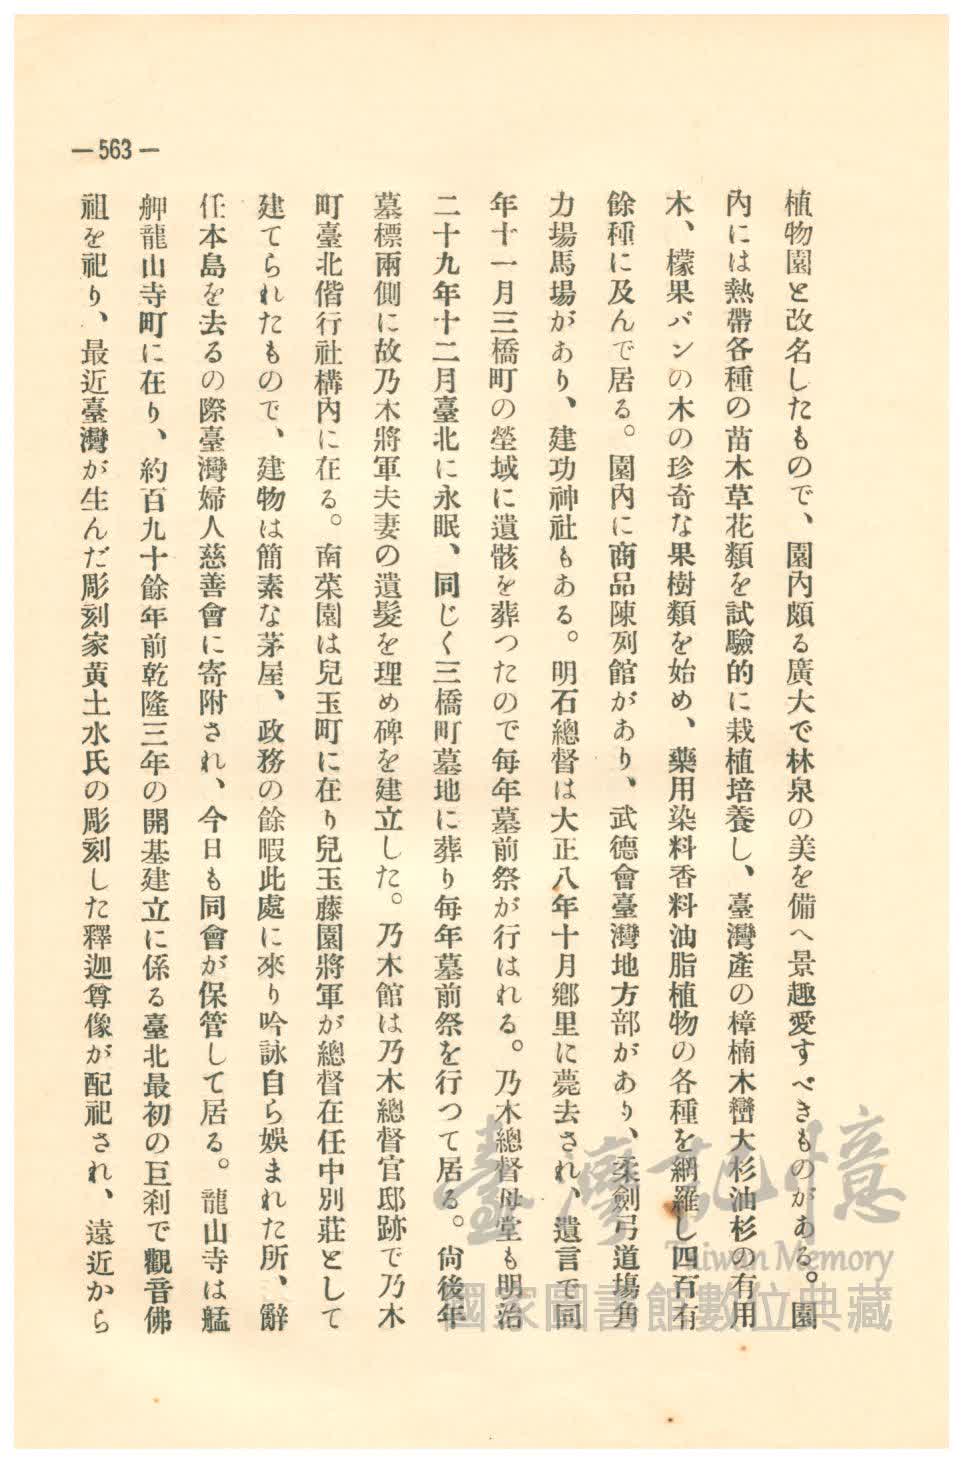 — 563 —
植物園と改名したもので、園內頗る廣大で林泉の美を備へ景趣愛すべきものがある。園
內には熱帶各種の苗木草花類を試驗的に栽植培養し、臺灣產の樟楠木巒大杉油杉の有用
木、檬果パンの木の珍奇な果樹類を始め、藥用染料香料油脂植物の各種を網羅し四百有
餘種に及んで居る。園內に商品陳列館があり、武德會臺灣地方部があり、柔劍弓道場角
力場馬場があり、建功神社もある。明石總督は大正八年十月鄕里に薨去され、遺言で同
年十一月三橋町の塋域に遺骸を葬つたので每年墓前祭が行はれる。乃木總督母堂も明治
二十九年十二月臺北に永眠、同じく三橋町墓地に葬り每年墓前祭を行つて居る。尙後年
墓標兩側に故乃木將軍夫妻の遺髮を理め碑を建立した。乃木館は乃木總督官邸跡で乃木
町臺北偕行社構內に在る。南菜園は兒玉町に在り兒玉藤園將軍が總督在任中別莊として
建てられたもので、建物は簡素な茅屋、政務の餘暇此處に來り吟詠自ら娛まれた所、辭
任本島を去るの際臺灣婦人慈善會に寄附され、今日も同會が保管して居る。龍山寺は艋
舺龍山寺町に在り、約百九十餘年前乾隆三年の開基建立に係る臺北最初の巨刹で觀音佛
祖を祀り、最近臺灣が生んだ彫刻家黃土水氏の彫刻した釋迦尊像が配祀され、遠近から
臺灣記憶
Taiwan Memory
國家圖書館數位典藏